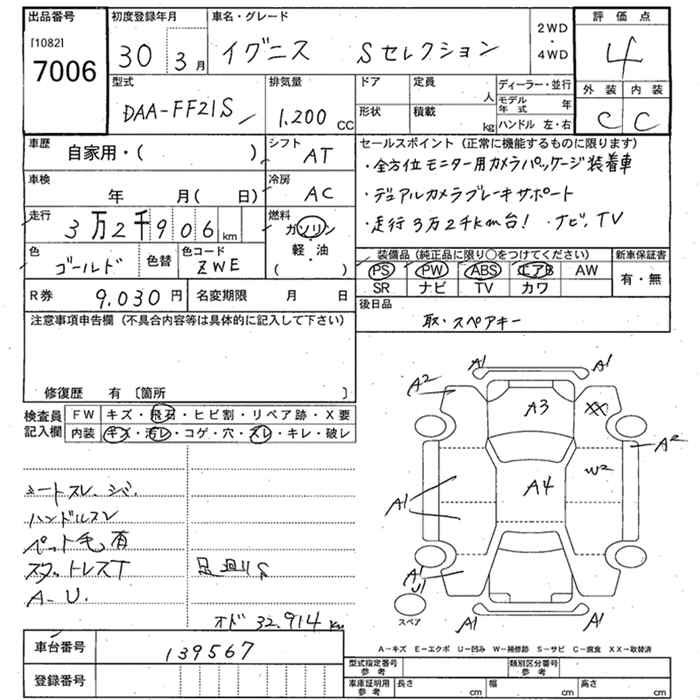 出品番号
[1082]
7006
初度登録年月
30年 3月
車名・グレード
イグニス Sセレクション
2WD
・
4WD
評価点
4
外装 内装
C C
型式
DAA-FF21S
排気量
1,200 CC
ドア
定員
人
形状
積載
kg
ディーラー・並行
モデル年式 年
ハンドル 左・右
車歴
自家用・( )
シフト
AT
車検
年 月( 日)
冷房
AC
走行
3万2千906km
燃料
ガソリン
軽・油
( )
色
ゴールド
色替
色コード
ZWE
R券
9,030円
名変期限 月 日
セールスポイント(正常に機能するものに限ります)
・全方位モニター用カメラパッケージ装着車
・デュアルカメラブレーキサポート
・走行3万2千km台! ・ナビ、TV
装備品(純正品に限り〇をつけてください)
新車保証書
PS PW ABS エアB AW
SR ナビ TV カワ
有・無
後日品
取・スペアキー
注意事項申告欄(不具合内容等は具体的に記入して下さい)
修復歴 有〔箇所 〕
検査員記入欄
FW キズ・飛石・ヒビ割・リペア跡・X要
内装 キズ・汚レ・コゲ・穴・スレ・キレ・破レ
シートスレ、シミ、
ハンドルスレ
ペット毛有
スタットレスT
A-U.
足廻りS
オド 32,914km
車台番号
139567
登録番号
A1
A1
A2
A3
XX
A2
W2
A4
A1
A1
U1
A1
A1
スペア
A-キズ E-エクボ U-凹み W-補修跡 S-サビ C-腐食 XX-取替済
型式指定番号
参考
類別区分番号
参考
車庫証明用
参考
長さ cm
幅 cm
高さ cm